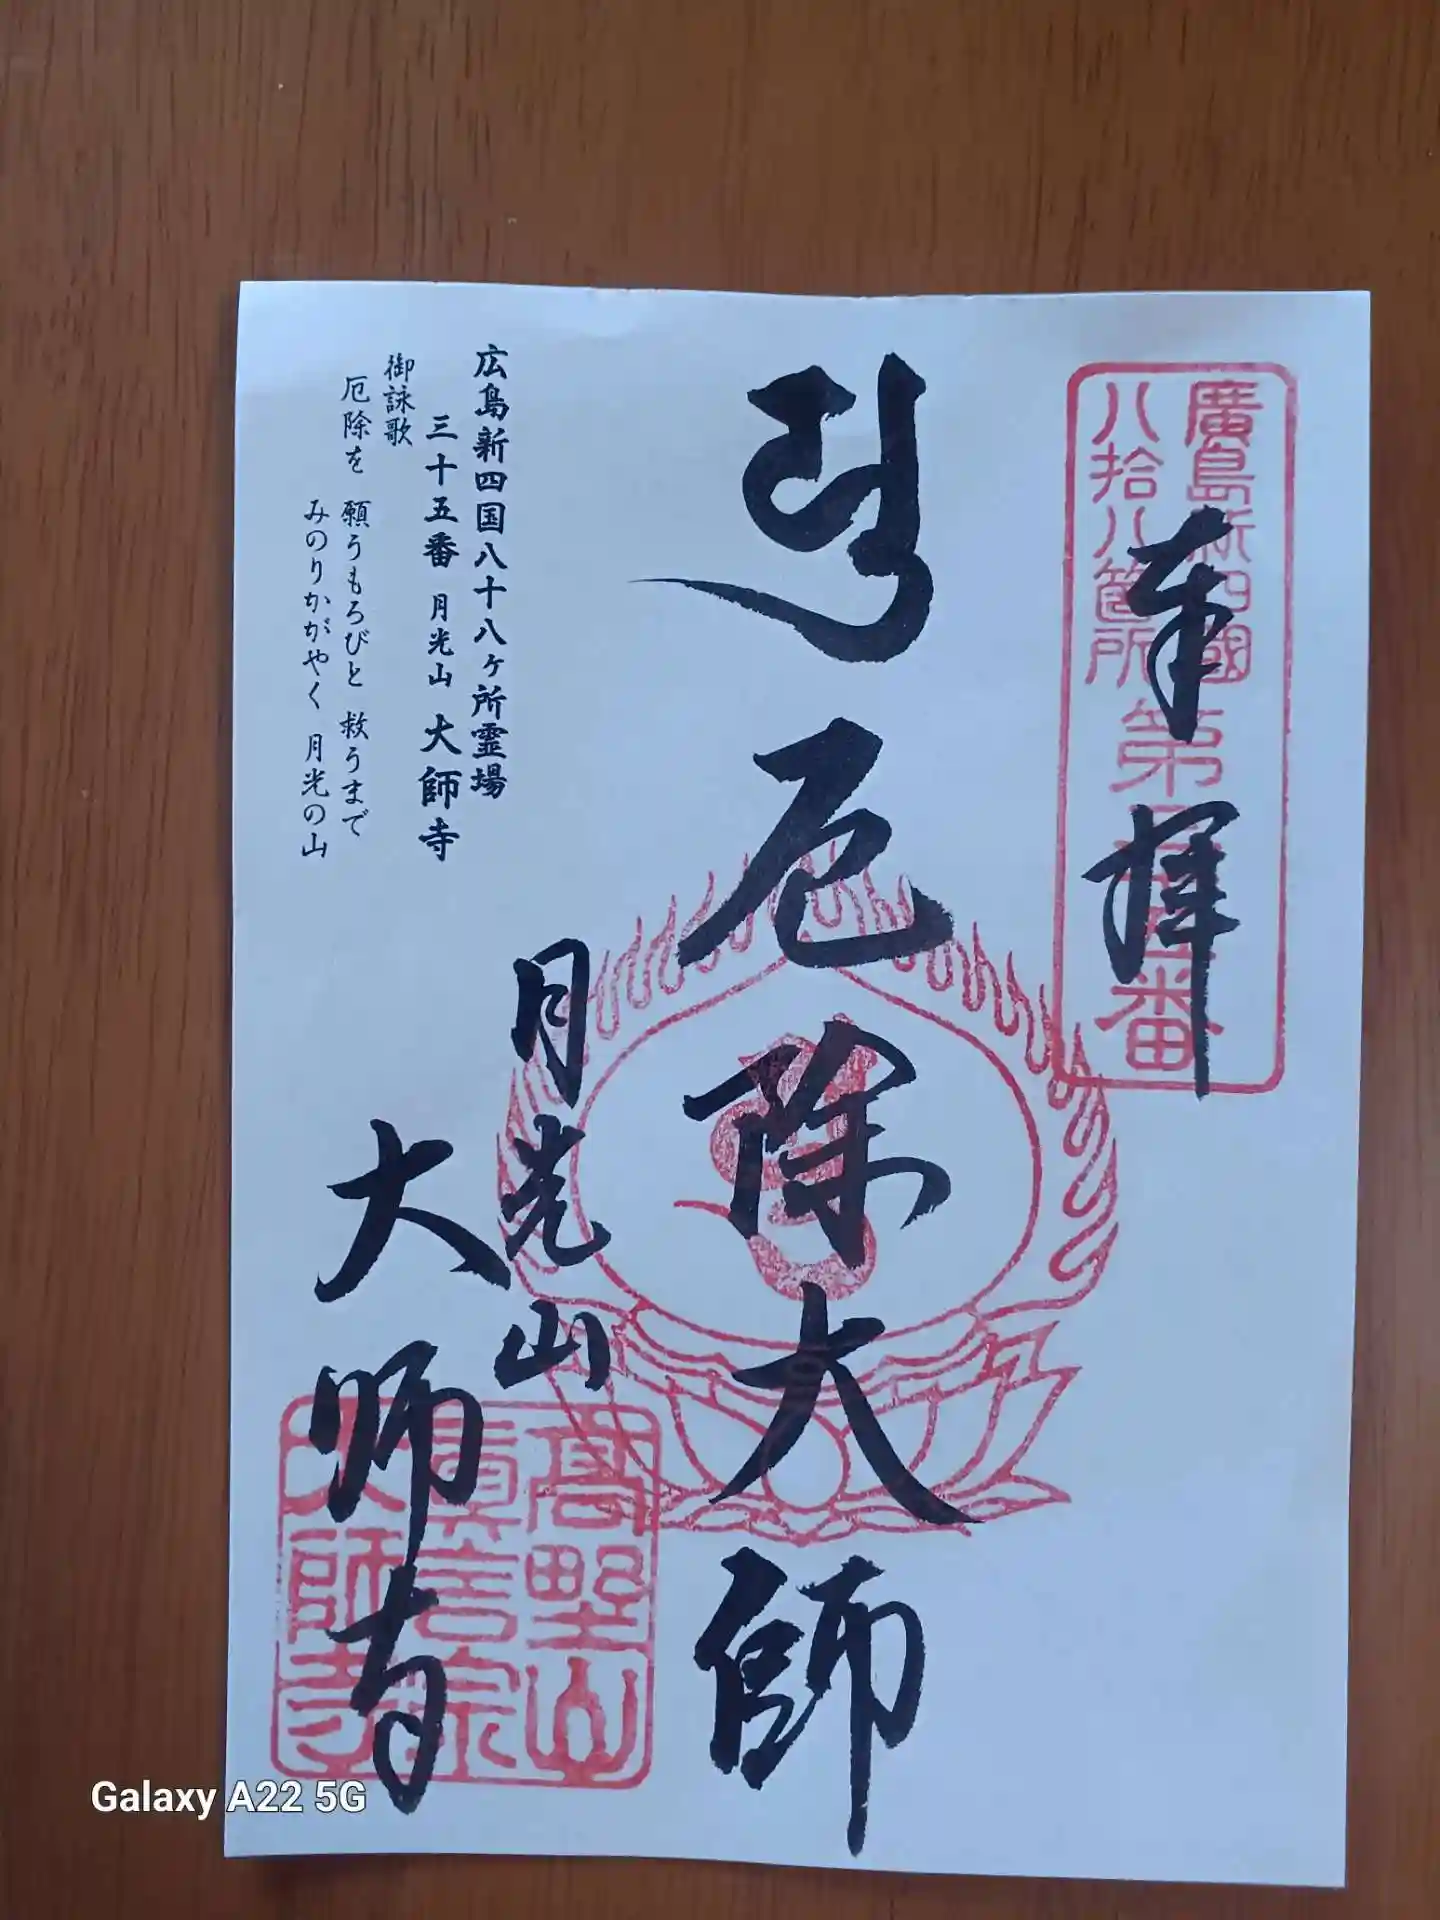 奉拝
廣島新四國
八拾八箇所
第三十五番
厄除大師
月光山
大師寺
高野山
真言宗
大師寺
広島新四国八十八ヶ所霊場
三十五番 月光山 大師寺
御詠歌
厄除を 願うもろびと 救うまで
みのりかがやく 月光の山
Galaxy A22 5G